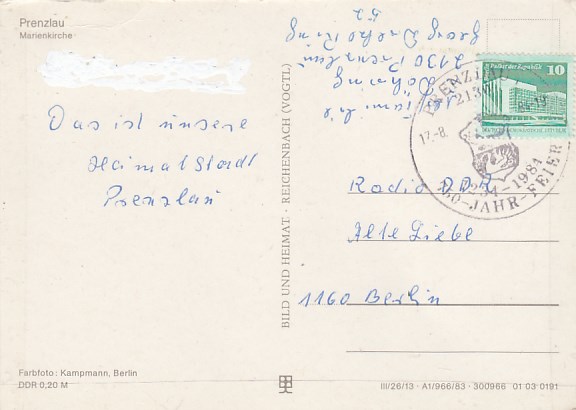 Prenzlau
Marienkirche
Das ist unsere
Heimatstadt
Prenzlau
Farbfoto: Kampmann, Berlin
DDR 0,20 M
BILD UND HEIMAT · REICHENBACH (VOGTL)
2130 Prenzlau
52
10
PRENZLAU
2130
17.-8.
1234-1984
750-JAHR-FEIER
Radio DDR
Alte Liebe
1160 Berlin
III/26/13 · A1/966/83 · 300966 01 03 0191